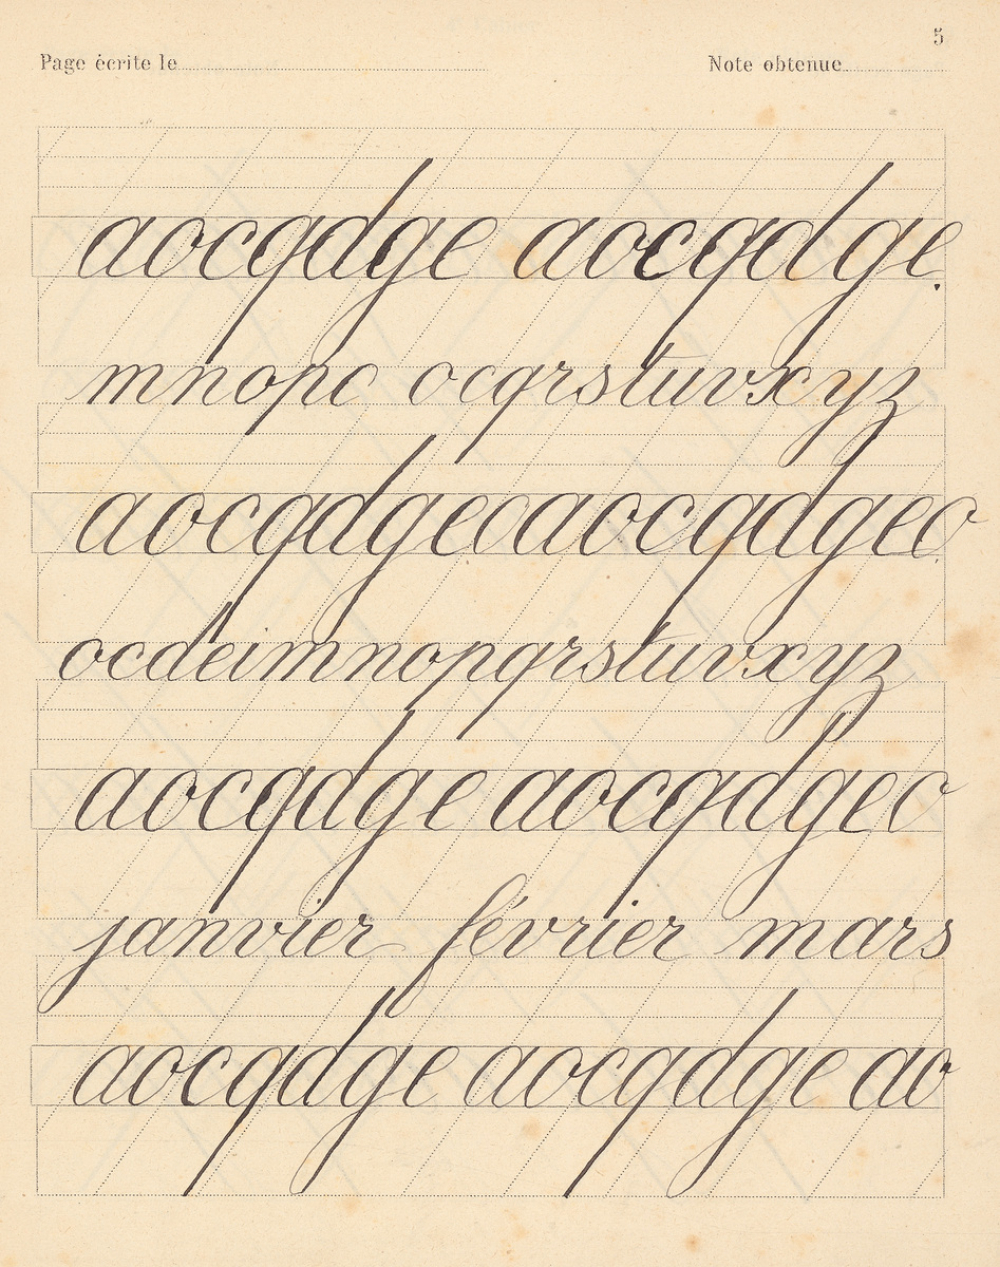 5
Page écrite le Note obtenue
aocqdge aocqdge.
mnopc ocqrstuvxyz
aocqdgeoaocqdgeo
ocdeimnopqrstuvxyz
aocqdge aocqdgeo
janvier février mars
aocqdge aocqdge ao